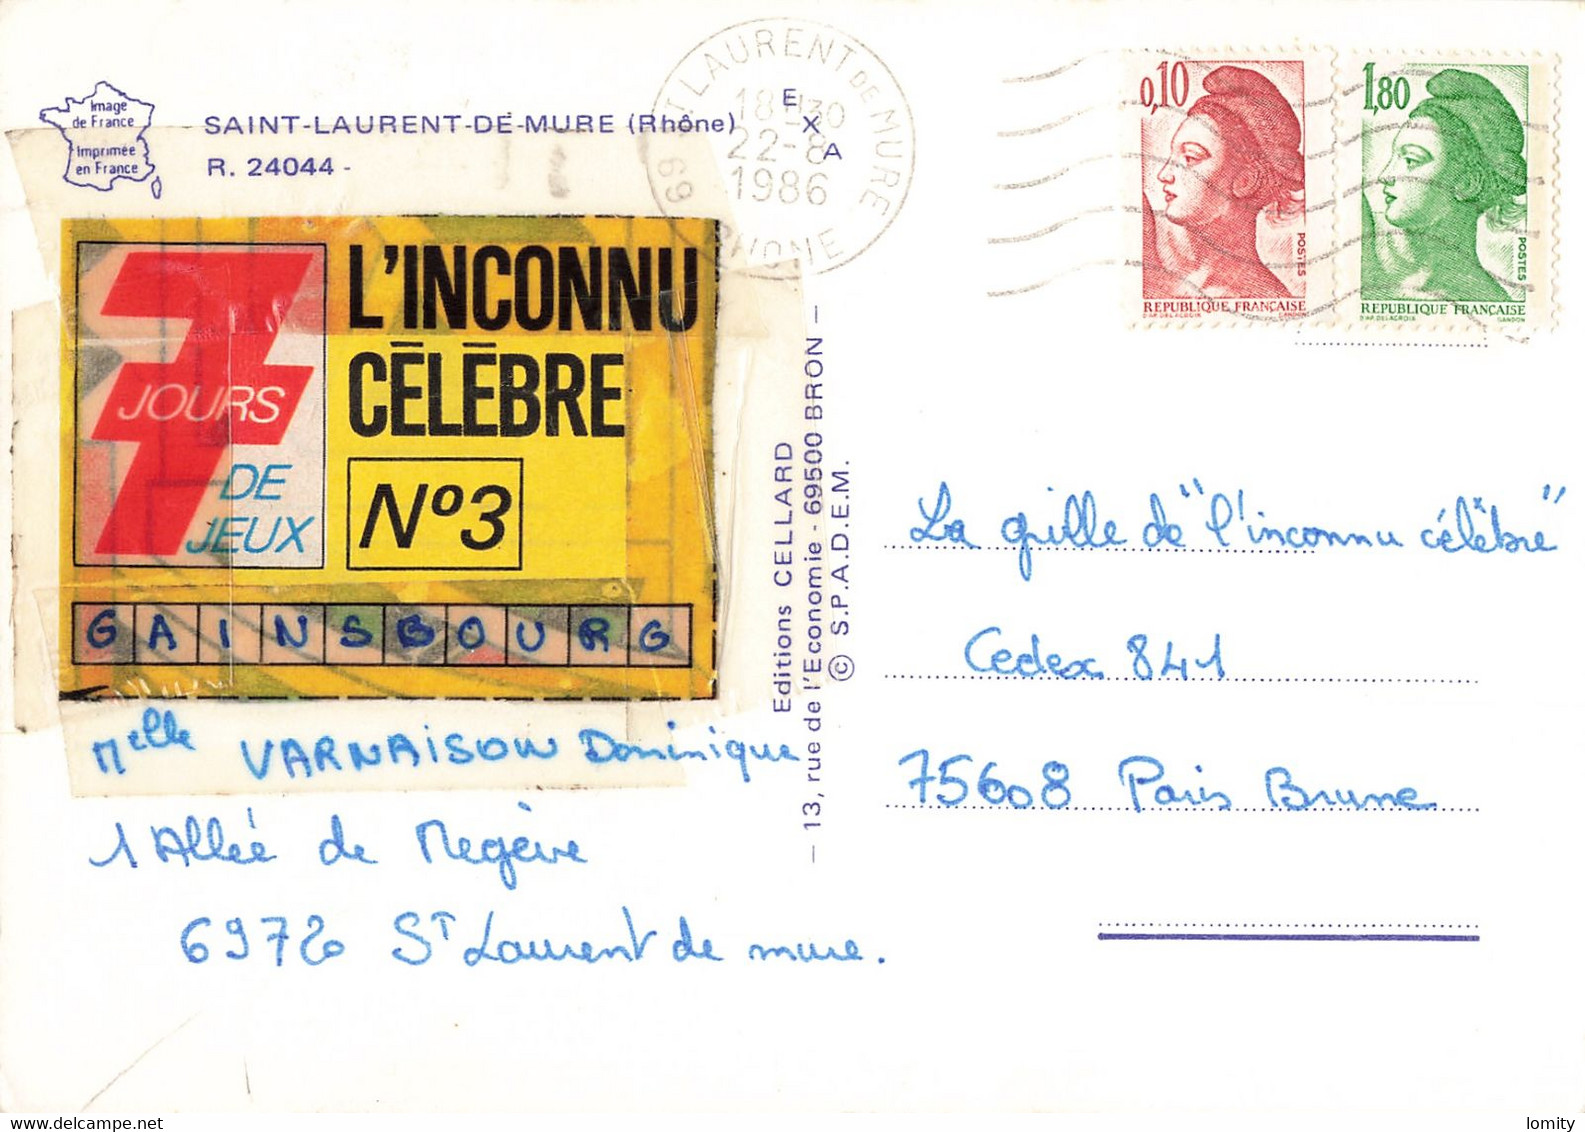 Image
de France
Imprimée
en France
SAINT-LAURENT-DE-MURE (Rhône)
R. 24044 -
E
X
A
ST LAURENT DE MURE
18H30
22-8
1986
69 RHONE
0,10
POSTES
REPUBLIQUE FRANÇAISE
D'AP. DELACROIX GANDON
1,80
POSTES
REPUBLIQUE FRANÇAISE
D'AP. DELACROIX GANDON
7
JOURS
DE
JEUX
L'INCONNU
CÉLÈBRE
N°3
GAINSBOURG
Melle VARNAISON Dominique
1 Allée de Megève
69720 ST Laurent de mure.
Editions CELLARD
— 13, rue de l'Economie - 69500 BRON —
© S.P.A.D.E.M.
La grille de "l'inconnu célèbre"
Cedex 841
75608 Paris Brune
delcampe.net
lomity